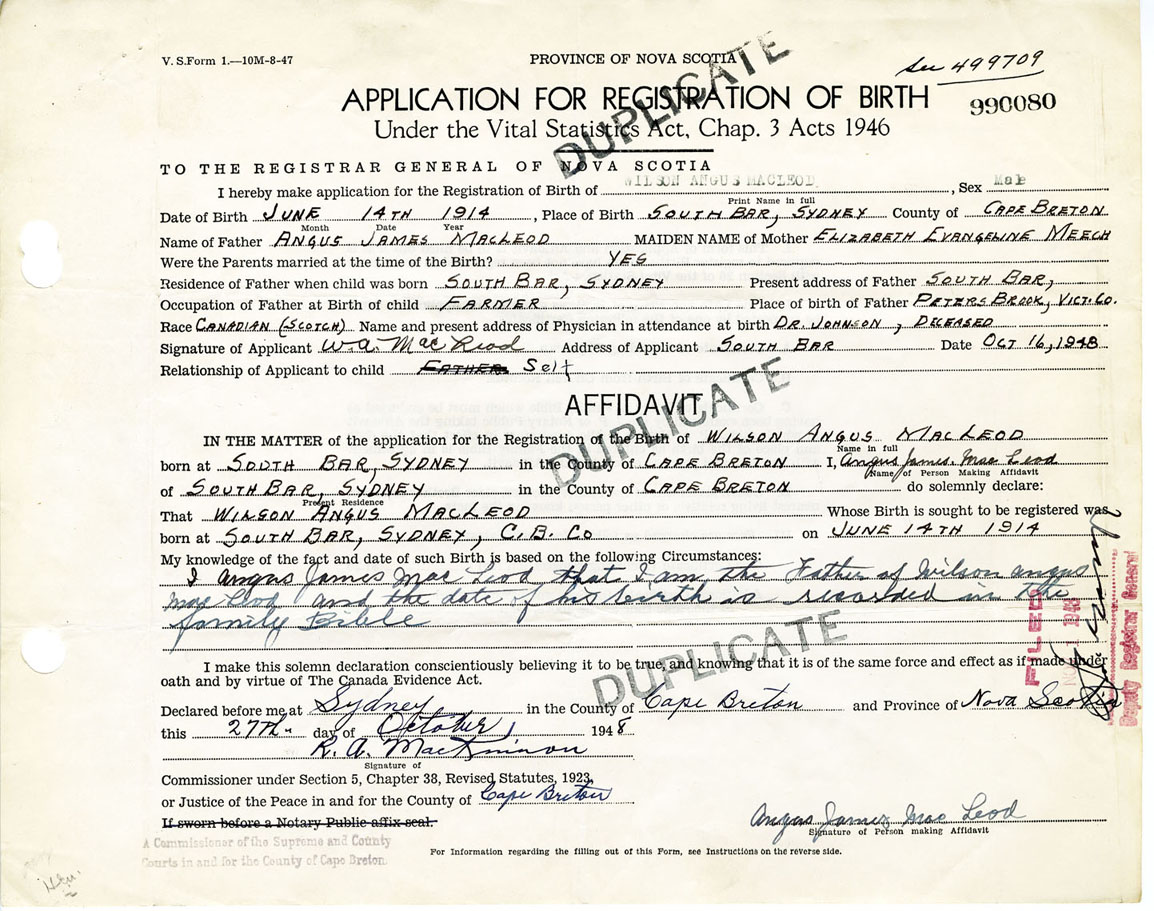 V. S. Form 1.—10M-8-47
PROVINCE OF NOVA SCOTIA
See 499709
990080
APPLICATION FOR REGISTRATION OF BIRTH
Under the Vital Statistics Act, Chap. 3 Acts 1946
DUPLICATE
TO THE REGISTRAR GENERAL OF NOVA SCOTIA
I hereby make application for the Registration of Birth of WILSON ANGUS MACLEOD, Sex Male
Print Name in full
Date of Birth JUNE 14TH 1914, Place of Birth SOUTH BAR, SYDNEY County of CAPE BRETON
Month Date Year
Name of Father ANGUS JAMES MACLEOD MAIDEN NAME of Mother ELIZABETH EVANGELINE MEECH
Were the Parents married at the time of the Birth? YES
Residence of Father when child was born SOUTH BAR, SYDNEY Present address of Father SOUTH BAR,
Occupation of Father at Birth of child FARMER Place of birth of Father PETERS BROOK, VICT. CO.
Race CANADIAN (SCOTCH) Name and present address of Physician in attendance at birth DR. JOHNSON, DECEASED
Signature of Applicant W. A. MacLeod Address of Applicant SOUTH BAR Date OCT 16, 1948
Relationship of Applicant to child FATHER Self
DUPLICATE
AFFIDAVIT
IN THE MATTER of the application for the Registration of the Birth of WILSON ANGUS MACLEOD
Name in full
born at SOUTH BAR, SYDNEY in the County of CAPE BRETON I, Angus James Mac Leod
Name of Person Making Affidavit
of SOUTH BAR, SYDNEY in the County of CAPE BRETON do solemnly declare:
Present Residence
That WILSON ANGUS MACLEOD Whose Birth is sought to be registered was
born at SOUTH BAR, SYDNEY, C. B. CO on JUNE 14TH 1914
My knowledge of the fact and date of such Birth is based on the following Circumstances:
I Angus James Mac Leod that I am the Father of Wilson angus
mac Leod and the date of his birth is recorded in the
family Bible
DUPLICATE
FILED
1948
Deputy Registrar General
I make this solemn declaration conscientiously believing it to be true, and knowing that it is of the same force and effect as if made under
oath and by virtue of The Canada Evidence Act.
Declared before me, at Sydney in the County of Cape Breton and Province of Nova Scotia
this 27th day of October, 1948
R. A. MacKinnon
Signature of
Commissioner under Section 5, Chapter 38, Revised Statutes, 1923,
or Justice of the Peace in and for the County of Cape Breton
If sworn before a Notary Public affix seal.
Angus James Mac Leod
Signature of Person making Affidavit
A Commissioner of the Supreme and County
Courts in and for the County of Cape Breton
For Information regarding the filling out of this Form, see Instructions on the reverse side.